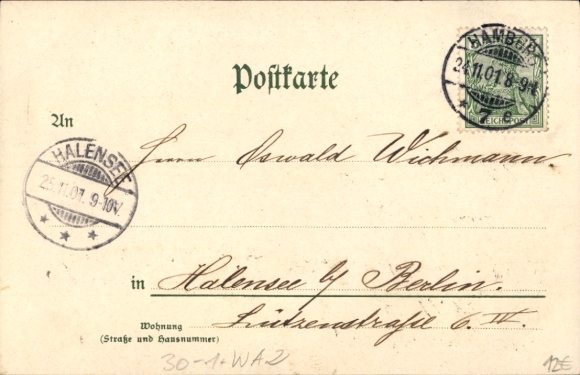 Postkarte
HAMBURG
24.11.01. 8-9N.
* 7 c
REICHSPOST
An
Herrn Oswald Wichmann
HALENSEE
25.11.01. 9-10V.
* * *
in Halensee b/ Berlin.
Wohnung
(Straße und Hausnummer)
Lützenstraße 6. IV.
30-1-WA2
12€